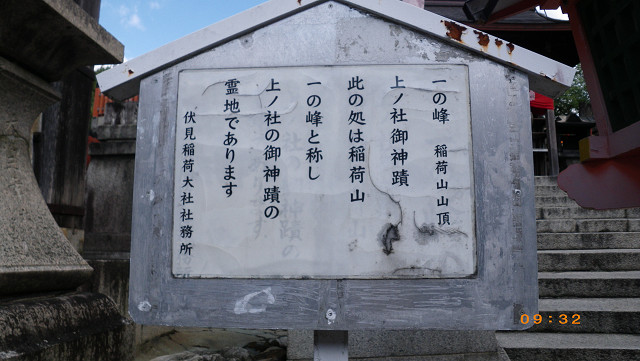 一の峰 稲荷山山頂
上ノ社御神蹟
此の処は稲荷山
一の峰と称し
上ノ社の御神蹟の
霊地であります
伏見稲荷大社社務所
09:32